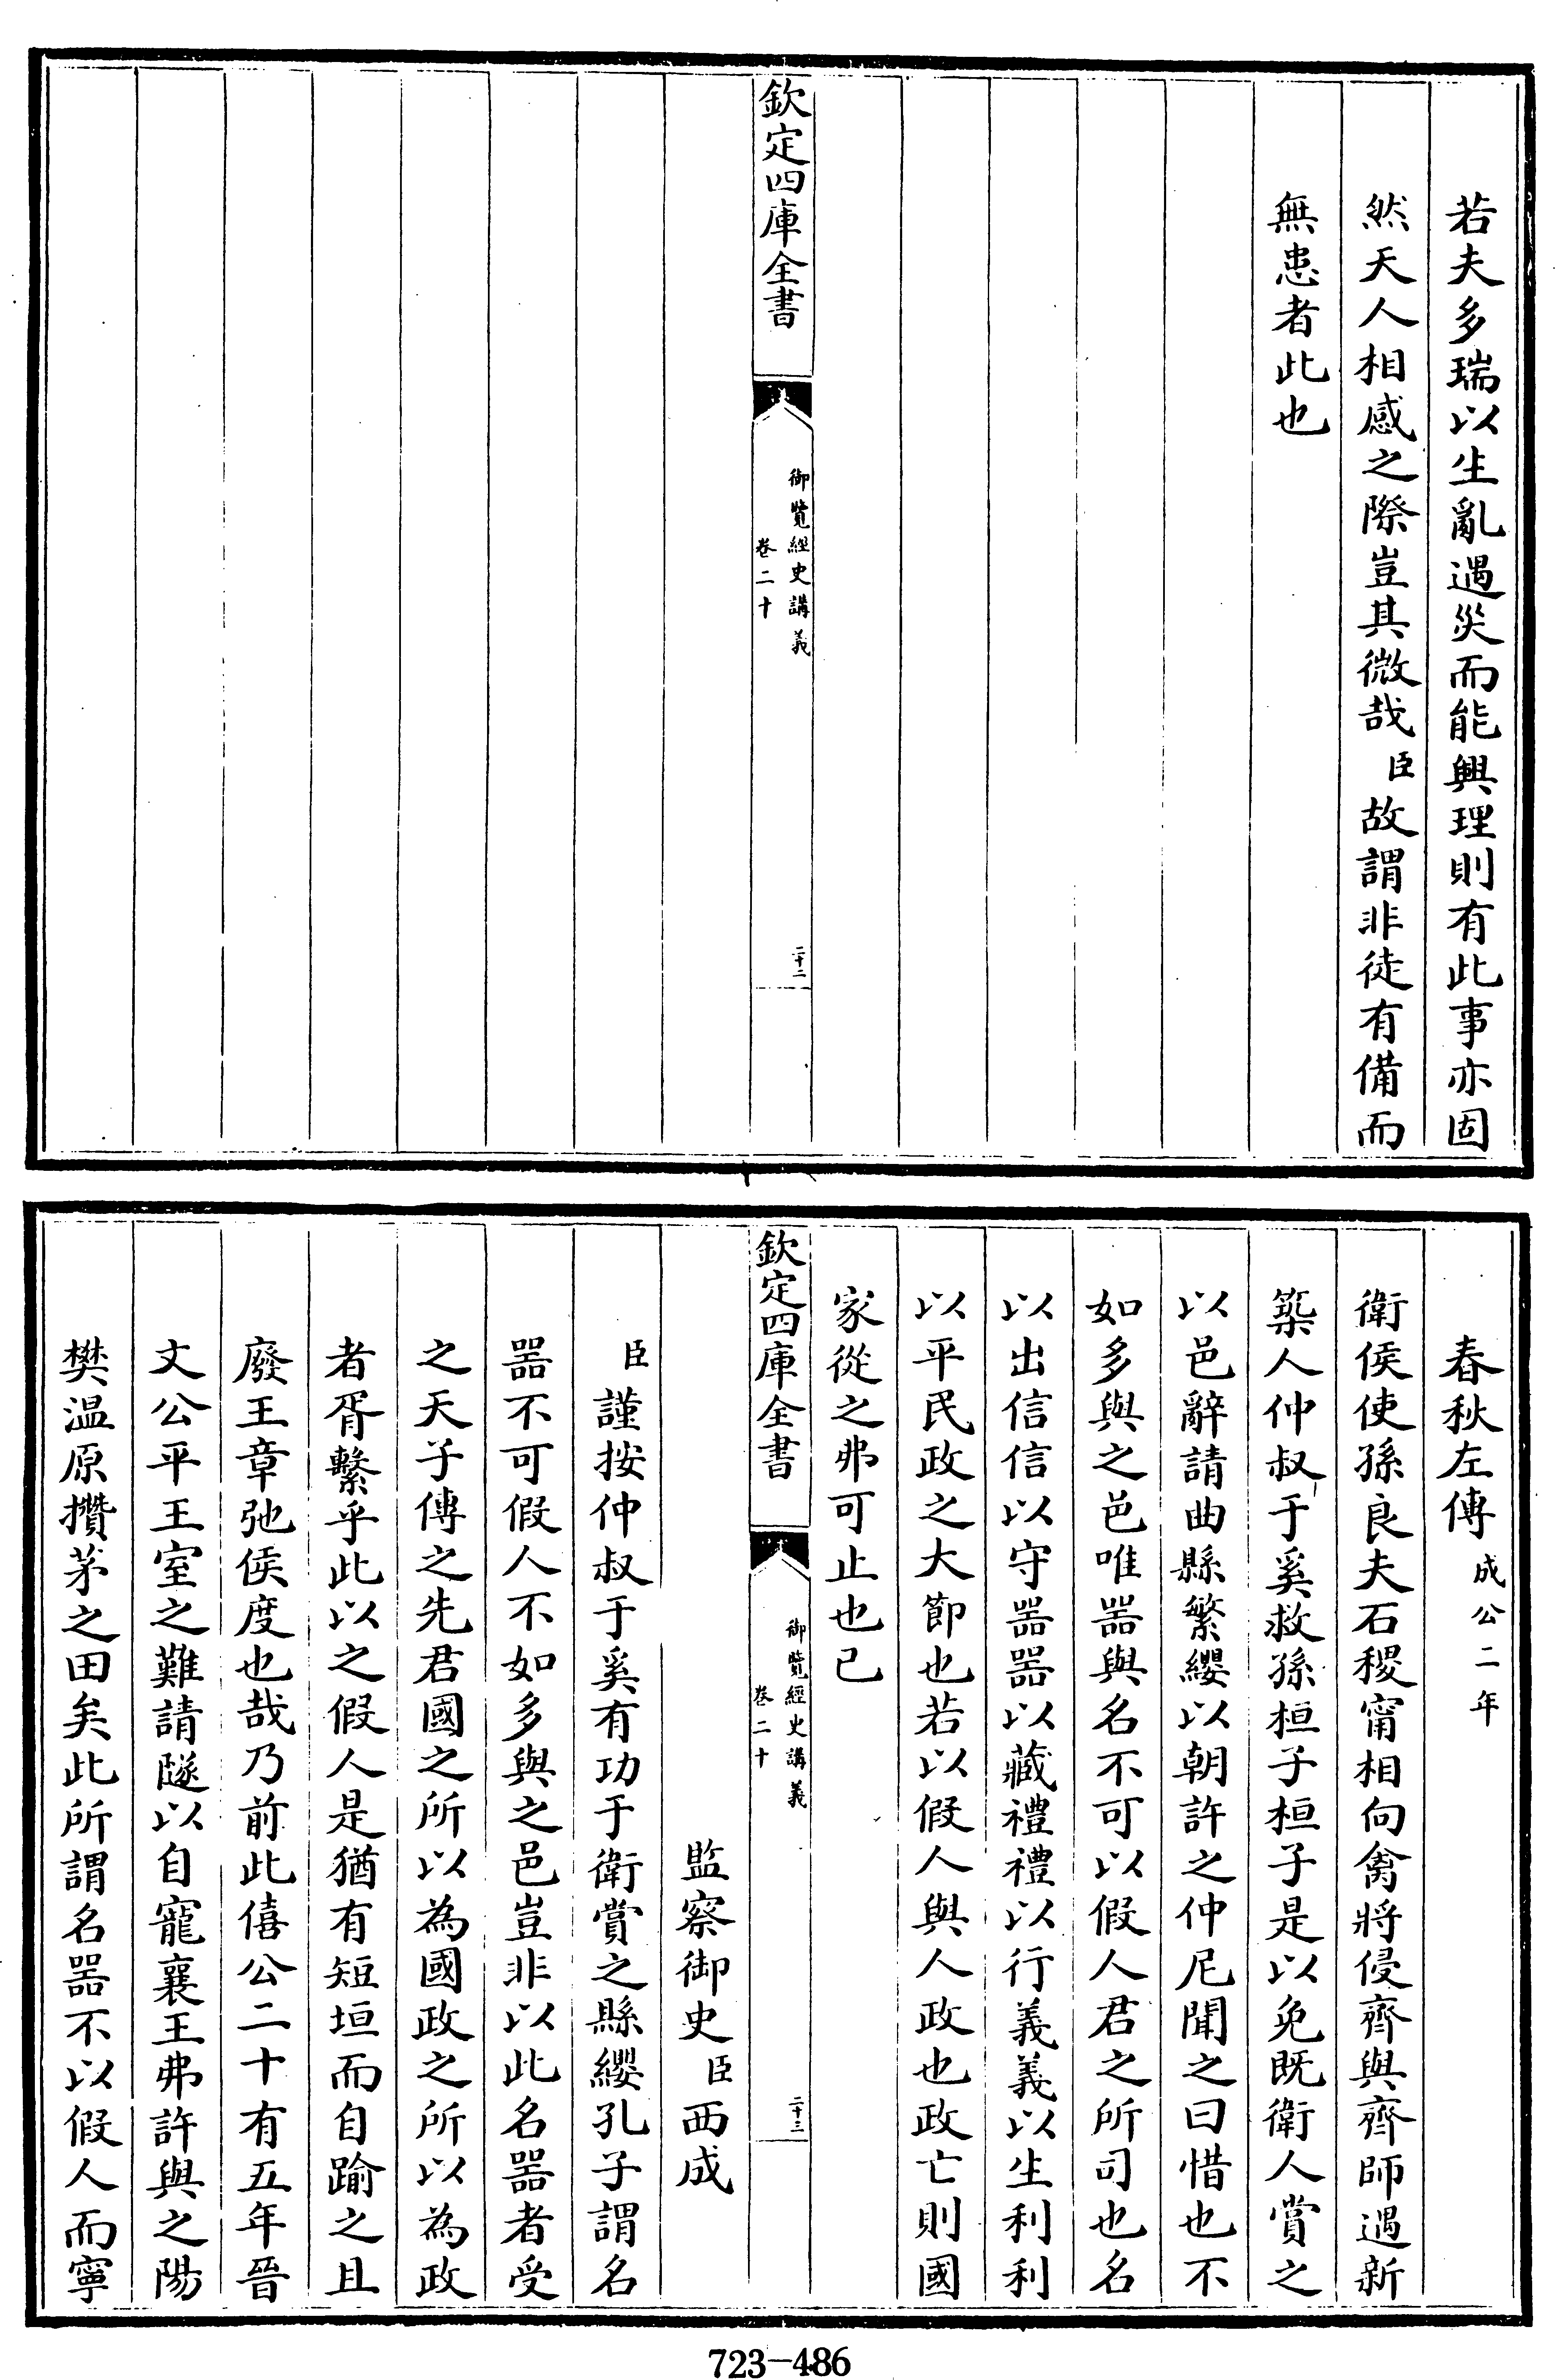 若夫多瑞以生亂遇災而能興理則有此事亦固
然天人相感之際豈其微哉臣故謂非徒有備而
無患者此也
欽定四庫全書
御覽經史講義
卷二十
二十二
春秋左傳成公二年
衛侯使孫良夫石稷甯相向禽將侵齊與齊師遇新
築人仲叔于奚救孫桓子桓子是以免既衛人賞之
以邑辭請曲縣繁纓以朝許之仲尼聞之曰惜也不
如多與之邑唯器與名不可以假人君之所司也名
以出信信以守器器以藏禮禮以行義義以生利利
以平民政之大節也若以假人與人政也政亡則國
家從之弗可止也已
欽定四庫全書
御覽經史講義
卷二十
二十三
監察御史臣西成
臣謹按仲叔于奚有功于衛賞之縣纓孔子謂名
器不可假人不如多與之邑豈非以此名器者受
之天子傳之先君國之所以為國政之所以為政
者胥繫乎此以之假人是猶有短垣而自踰之且
廢王章弛侯度也哉乃前此僖公二十有五年晉
文公平王室之難請隧以自寵襄王弗許與之陽
樊溫原攢茅之田矣此所謂名器不以假人而寧
723-486